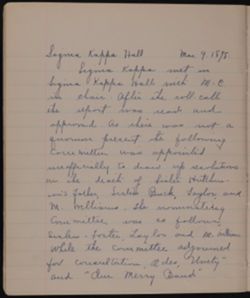 Sigma Kappa Hall Mar 9. 1895.
Sigma Kappa met in
Sigma Kappa Hall with M.C.
in chair. After the roll-call
the report was read and
approved. As there was not a
quorum present the following
Committee was appointed
unofficially to draw up resolutions
on the death of Sister
father, Sisters Buck, Taylor and
M. Williams. The nominating
Committee was as follows
Sisters Foster, Taylor and M. Williams
While the Committee adjourned
for consultation, Odes, "Unity"
and "Our Merry Band"